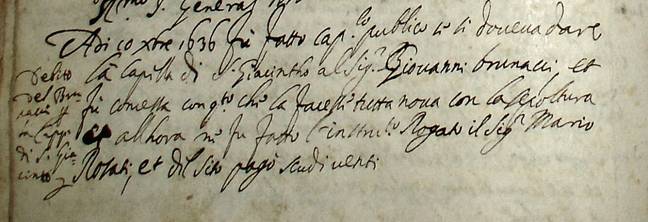 Adi 10 xbre 1636 fù fatto Cap.lo publico se si doveva dare
la Capella di S. Giacintho al Sig.r Giovanni brunacci, et
fù concessa con q.to che la facesse tutta nova con la sepoltura
et allhora ne fu fatto l'instru.to Rogato il Sig.r Mario
Rosati, et di Sito pagò scudi venti
Debito
del Bru
nacci
Capp.
di S. Gia
cinto